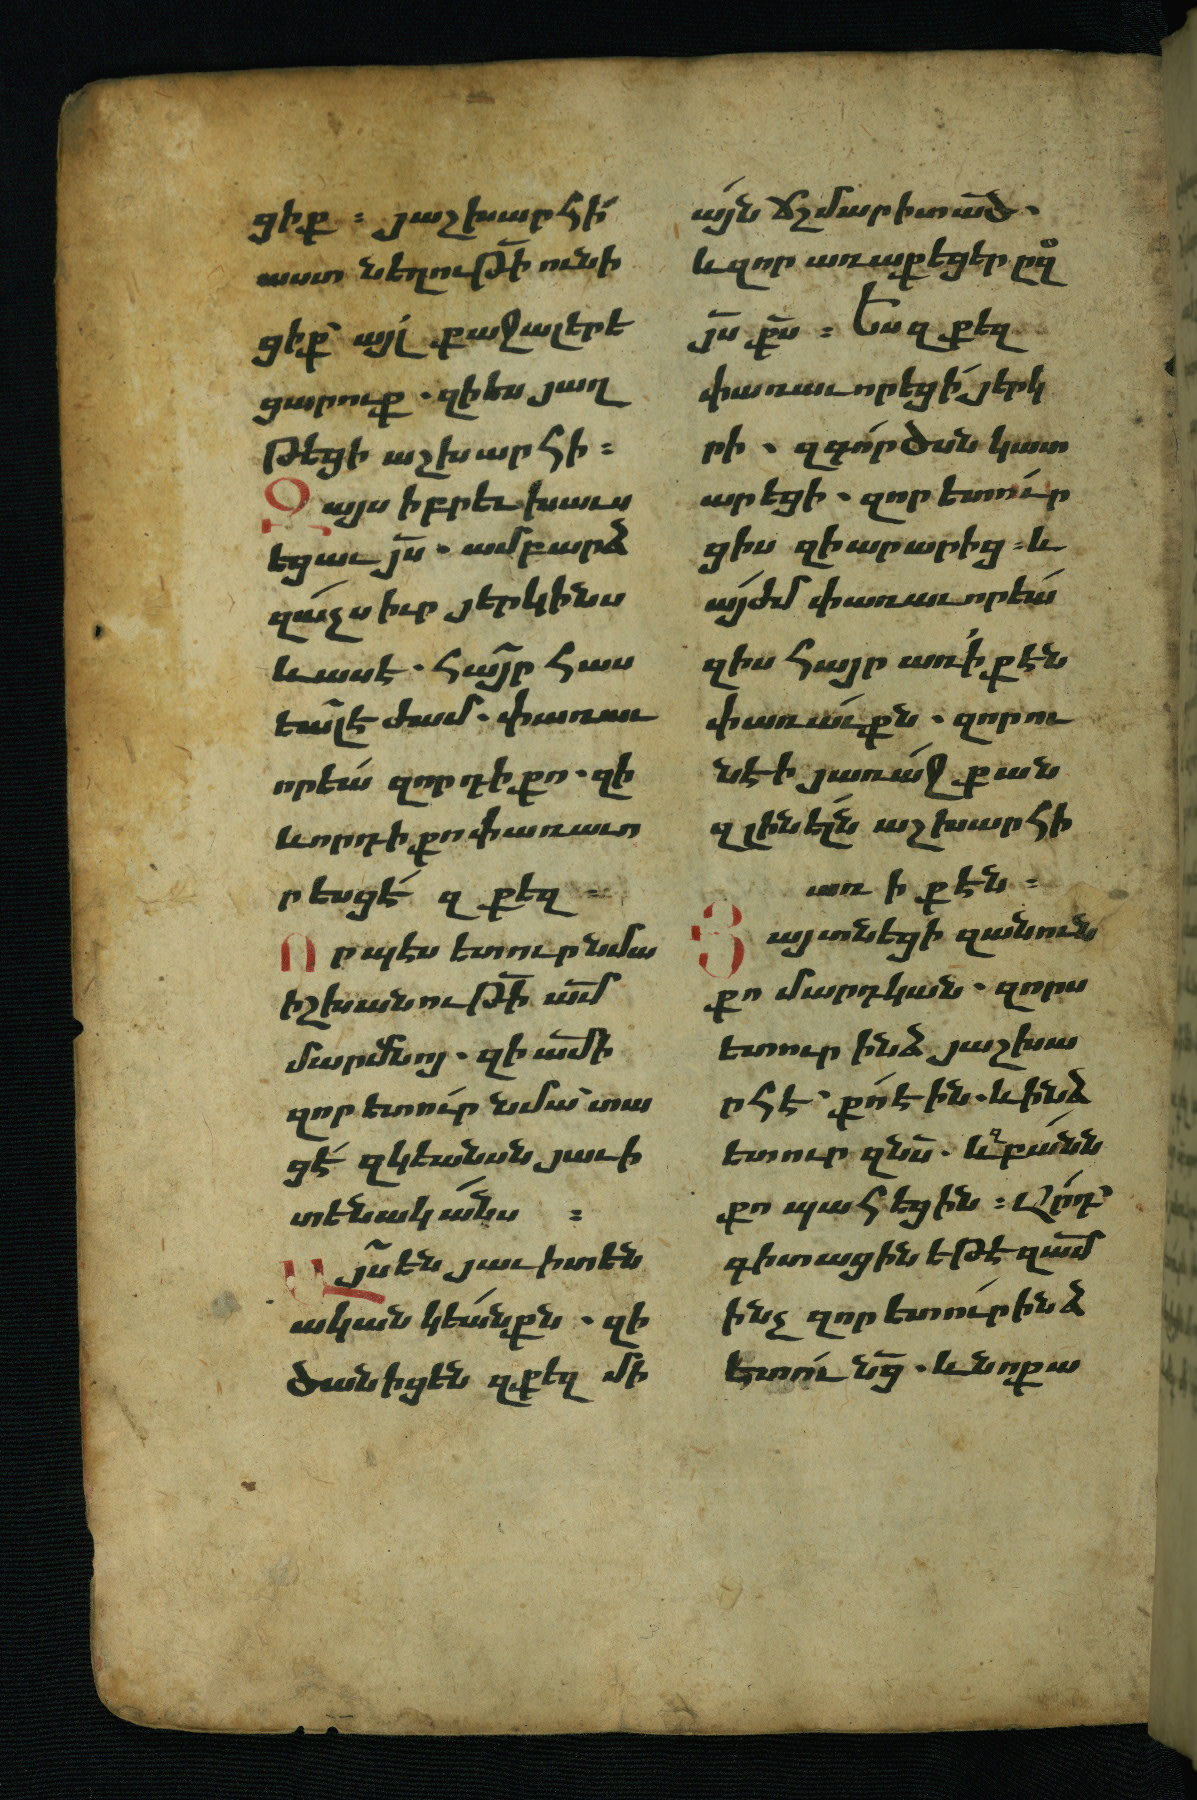 ցիք ։ յաշխարհի՛
աստ նեղութի՟ ունի
ցիք՝ այլ քաջալերե
ցարուք . զիես յաղ
թեցի աշխարհի ։
Զայս իբրեւ խաւս
եցաւ յ՟ս . ամբարձ
զա՛չս իւր յերկինս
և ասէ . հա՟յր հաս
եա՟լէ ժամ . փառաւ
որեա՛ զորդի քո . զի
և որդի քո փառաւո
րեսցէ՛ զ քեզ ։
Որպէս ետուր նմա
իշխանութի՟ ա՟մ
մարմնոյ . զի ա՟մի
զոր ետո՛ւր նմա՝ տա
ցէ՛ զկեանսն յաւի
տենակա՛նս ։
Այ՟ս են յաւիտեն
ական կեա՛նքն . զի
ծանիցեն զքեզ մի
ա՛յն ճշմարիտ ա՟ծ .
և զոր առաքեցեր ըզ
յ՟ս ք՟ս ։ Ես զ քեզ
փառաւորեցի՛ յերկ
րի . զգո՛րծսն կատ
արեցի . զոր ետո՛ւր
ցիս զի արարից ։ և
ա՛յժմ փառաւորեա՛
զիս հայր առ ի՛ քէն
փառա՛ւքն . զոր ու
նէի յառա՛ջ քան
զլինե՛լն աշխարհի
առ ի քէն ։
Յայտնեցի զանուն
քո մարդկան . զորս
ետուր ինձ յաշխա
րհէ՝ քո՛ էին . և ինձ
ետուր զնս՟ . և զբա՛նն
քո պահեցին ։ Արդ՝
գիտացին եթէ զա՟մ
ինչ զոր ետո՛ւր ինձ
ետո՛ւ նց՟ . և նոքա